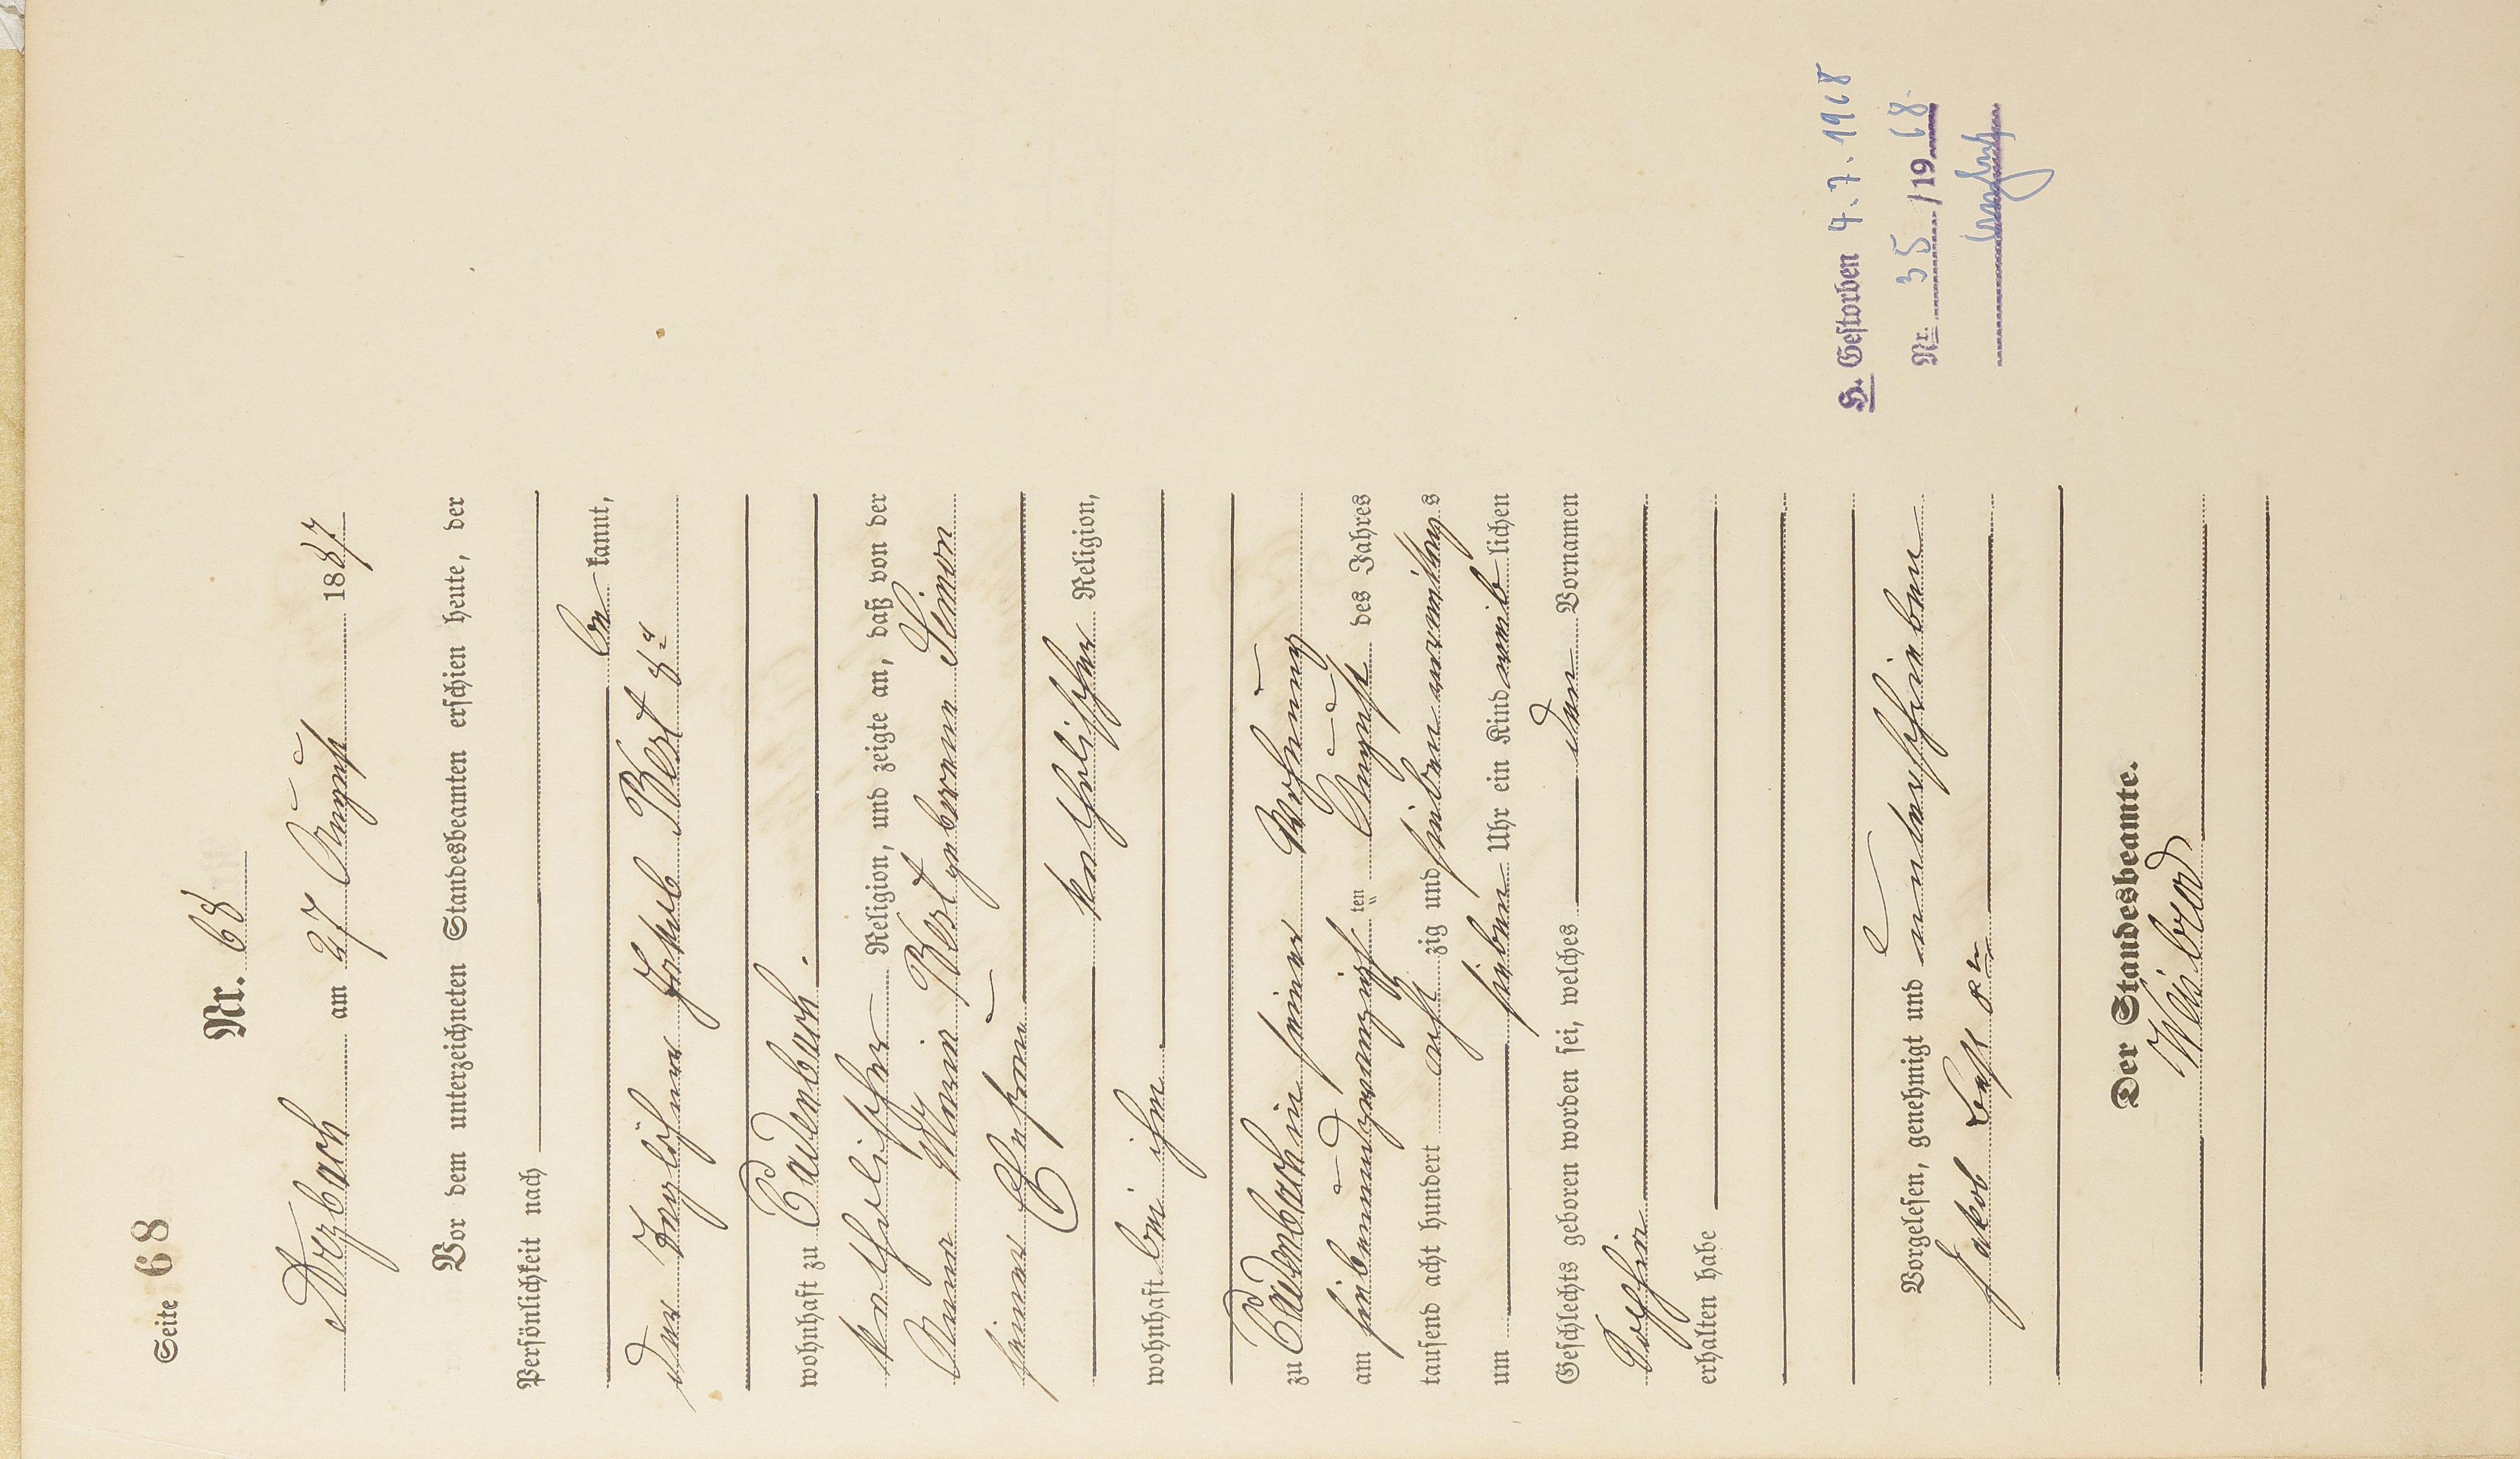 Seite 68
Nr. 68
Arzbach am 27 August 1887
Vor dem unterzeichneten Standesbeamten erschien heute, der
Persönlichkeit nach
be kannt,
der Taglöhner Jakob Best 8r
wohnhaft zu Cadenbach.
katholischer Religion, und zeigte an, daß von der
Anna Maria Best geborene Simon
seiner Ehefrau
katholischer Religion,
wohnhaft bei ihm
zu Cadenbach in seiner Wohnung
am siebenundzwanzigsten August des Jahres
tausend acht hundert acht zig und sieben vormittags
um sieben Uhr ein Kind weib lichen
Geschlechts geboren worden sei, welches den Vornamen
Sophia
erhalten habe
Vorgelesen, genehmigt und unterschrieben
Jakob Best 8r
Der Standesbeamte.
H. Gestorben 4.7.1968
Nr. 35 /1968.